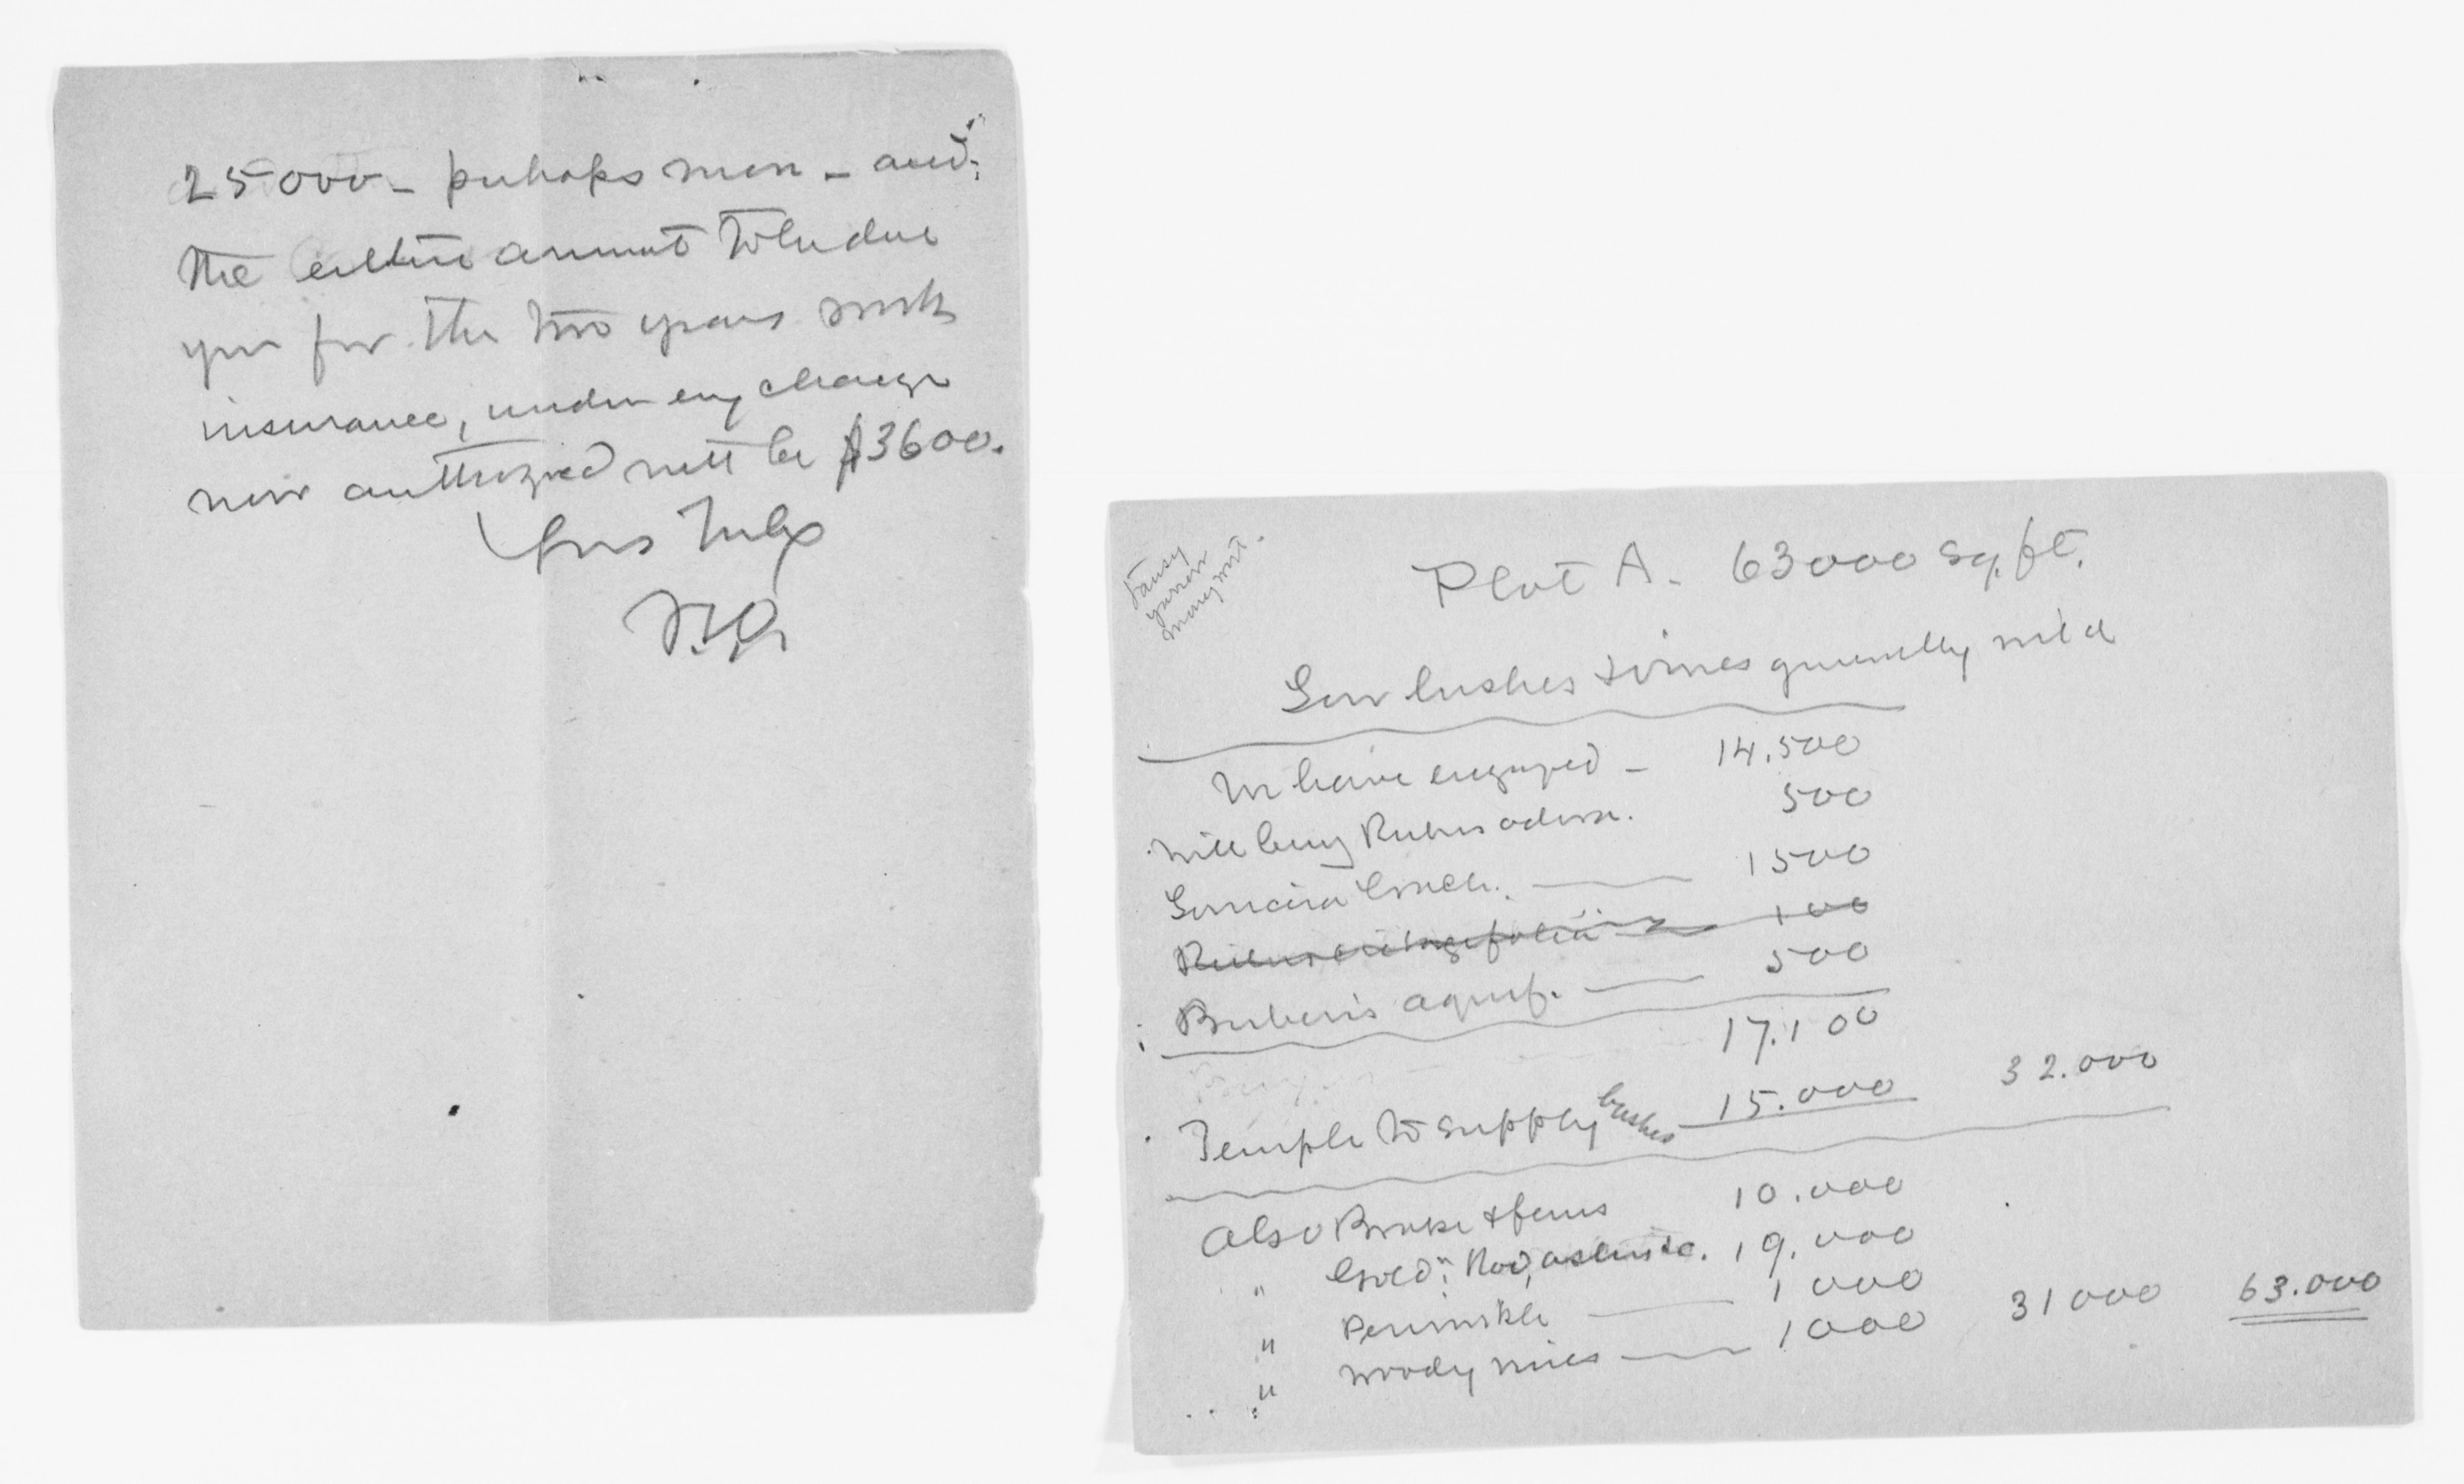 25000 - perhaps more - and
the entire amount to be due
you for the two years work
insurance, under any change
now authorized will be $3600.
Yours Truly
Plot A - 63000 sq. ft.
Tansy
yarrow
money wort.
Low bushes & vines generally mild
We have engaged - 14.500
Will buy Rubus odora. 500
Lonicera Brach. 1500
100
Berberis aquif. 500
17.100
Temple to supply bushes 15.000 32.000
Also Brake & ferns 10.000
" Gold: Rod, asters &c. 19.000
" Periwinkle 1000
" woody vines 1000 31000 63.000